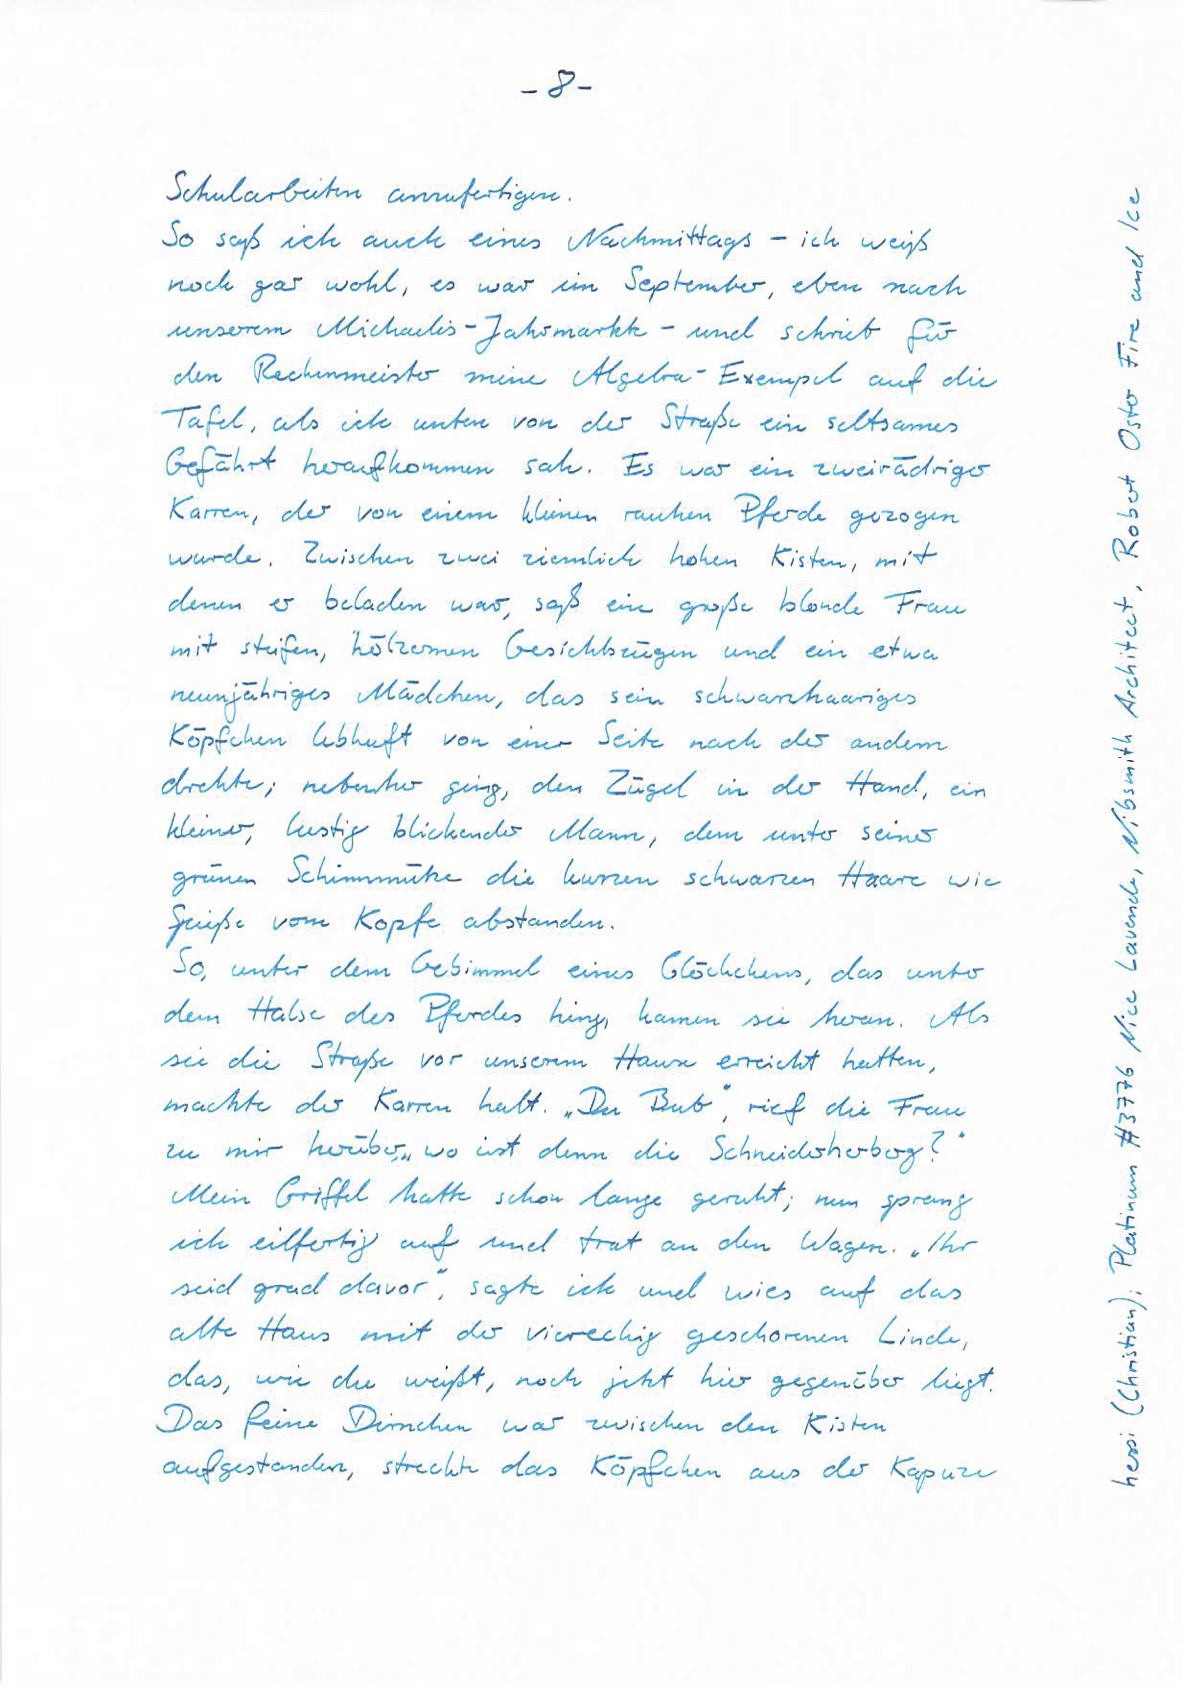 -8-
Schularbeiten anzufertigen.
So saß ich auch eines Nachmittags – ich weiß
noch gar wohl, es war im September, eben nach
unserem Michaelis-Jahrmarkte – und schrieb für
den Rechenmeister meine Algebra-Exempel auf die
Tafel, als ich unten von der Straße ein seltsames
Gefährt heraufkommen sah. Es war ein zweirädriger
Karren, der von einem kleinen rauhen Pferde gezogen
wurde. Zwischen zwei ziemlich hohen Kisten, mit
denen er beladen war, saß eine große blonde Frau
mit steifen, hölzernen Gesichtszügen und ein etwa
neunjähriges Mädchen, das sein schwarzhaariges
Köpfchen lebhaft von einer Seite nach der andern
drehte; nebenher ging, den Zügel in der Hand, ein
kleiner, lustig blickender Mann, dem unter seiner
grünen Schirmmütze die kurzen schwarzen Haare wie
Spieße vom Kopfe abstanden.
So, unter dem Gebimmel eines Glöckchens, das unter
dem Halse des Pferdes hing, kamen sie heran. Als
sie die Straße vor unserem Hause erreicht hatten,
machte der Karren halt. „Du Bub", rief die Frau
zu mir herüber, „wo ist denn die Schneiderherberg?"
Mein Griffel hatte schon lange geruht; nun sprang
ich eilfertig auf und trat an den Wagen. „Ihr
seid grad davor", sagte ich und wies auf das
alte Haus mit der viereckig geschorenen Linde,
das, wie du weißt, noch jetzt hier gegenüber liegt.
Das feine Dirnchen war zwischen den Kisten
aufgestanden, streckte das Köpfchen aus der Kapuze
hessi (Christian); Platinum #3776 Nice Lavende, Nibsmith Architect, Robert Oster Fire and Ice